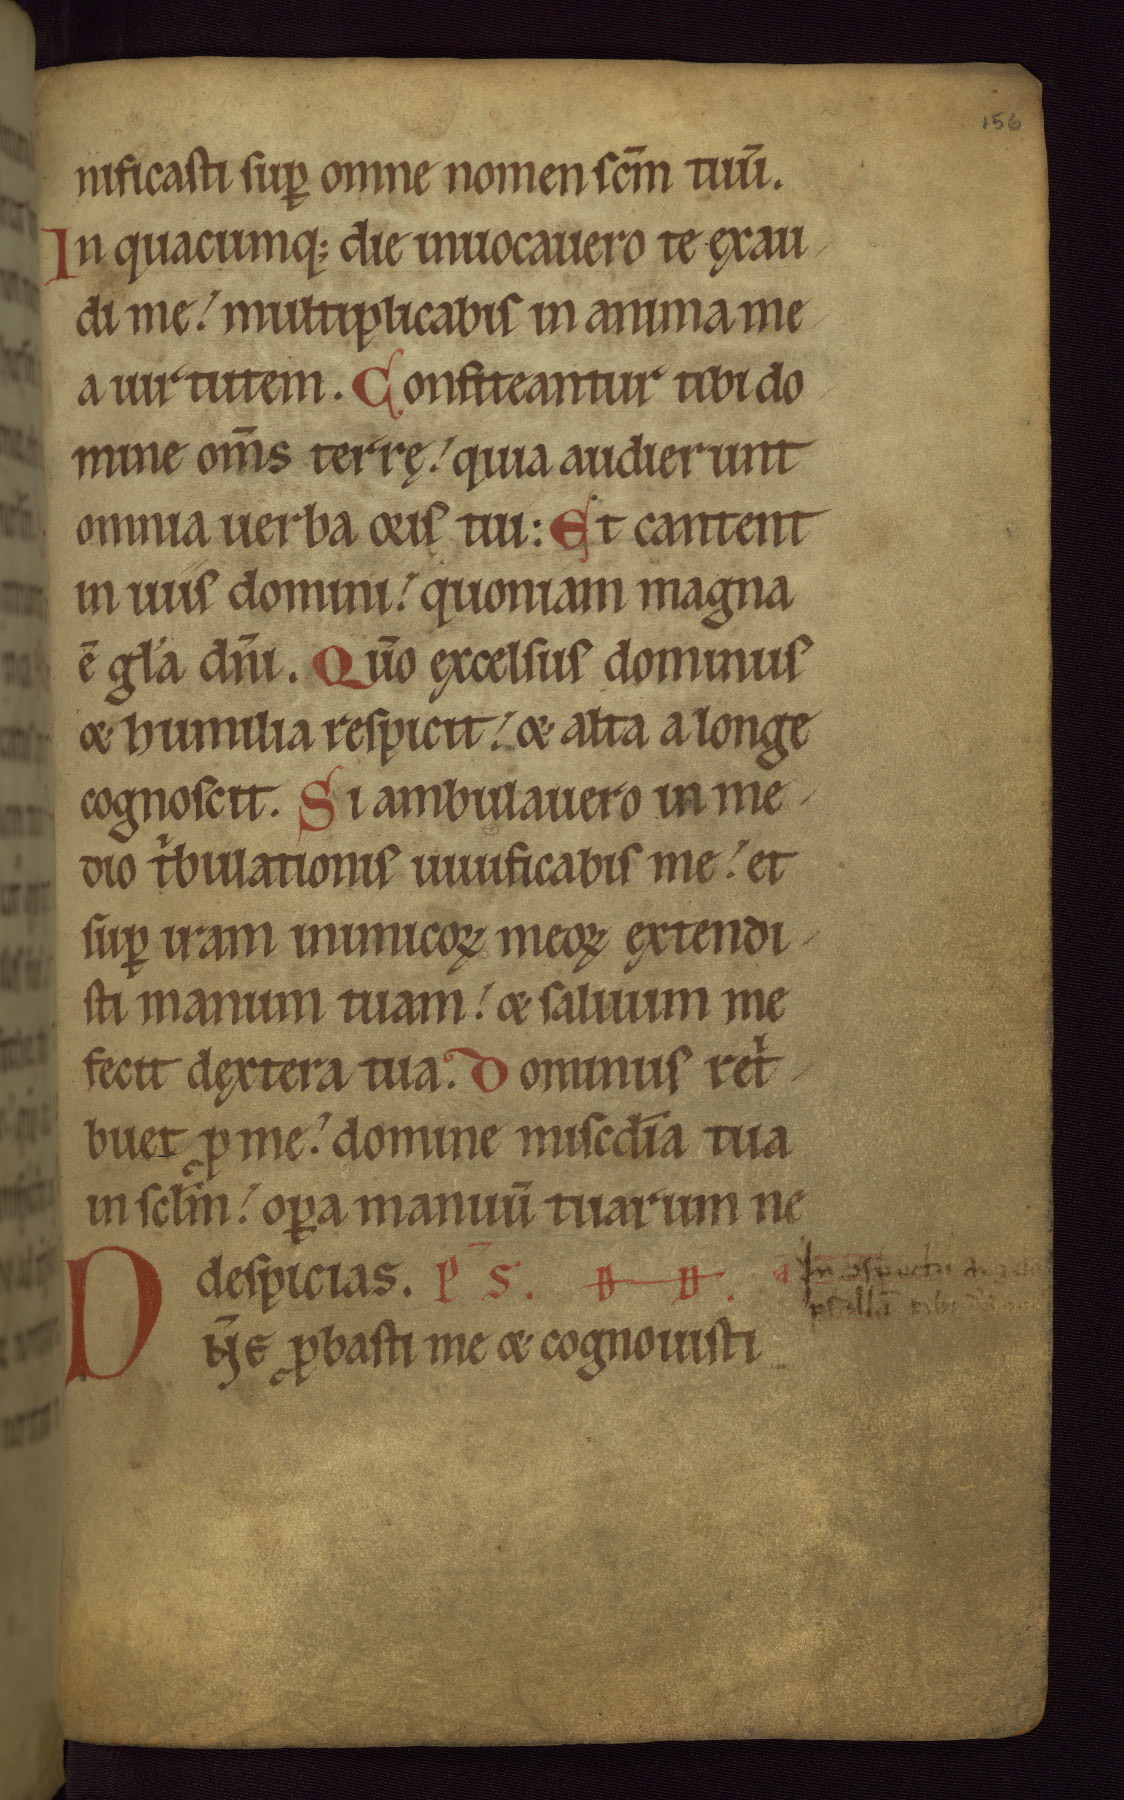 156
nificasti suꝑ omne nomen scm̄ tuū.
In quacumq; die inuocauero te exau
di me! multiplicabis in anima me
a uirtutem. Confiteantur tibi do
mine om̄s terrę! quia audierunt
omnia uerba oris tui: Et cantent
in uiis domini! quoniam magna
ē gl'a dn̄i. Qūo excelsus dominus
& humilia respicit! & alta a longe
cognoscit. Si ambulauero in me
dio tͥbulationis uiuificabis me! et
suꝑ iram inimicoꝝ meoꝝ extendi
sti manum tuam! & saluum me
fecit dęxtera tua. Dominus retͥ
buet ꝓ me! domine misc̄dia tua
in scl̄m! oꝑa manuū tuarum ne
despicias. P̄S. DD.
Dn̄e ꝓbasti me & cognouisti
a In conspectu
psallā tibi